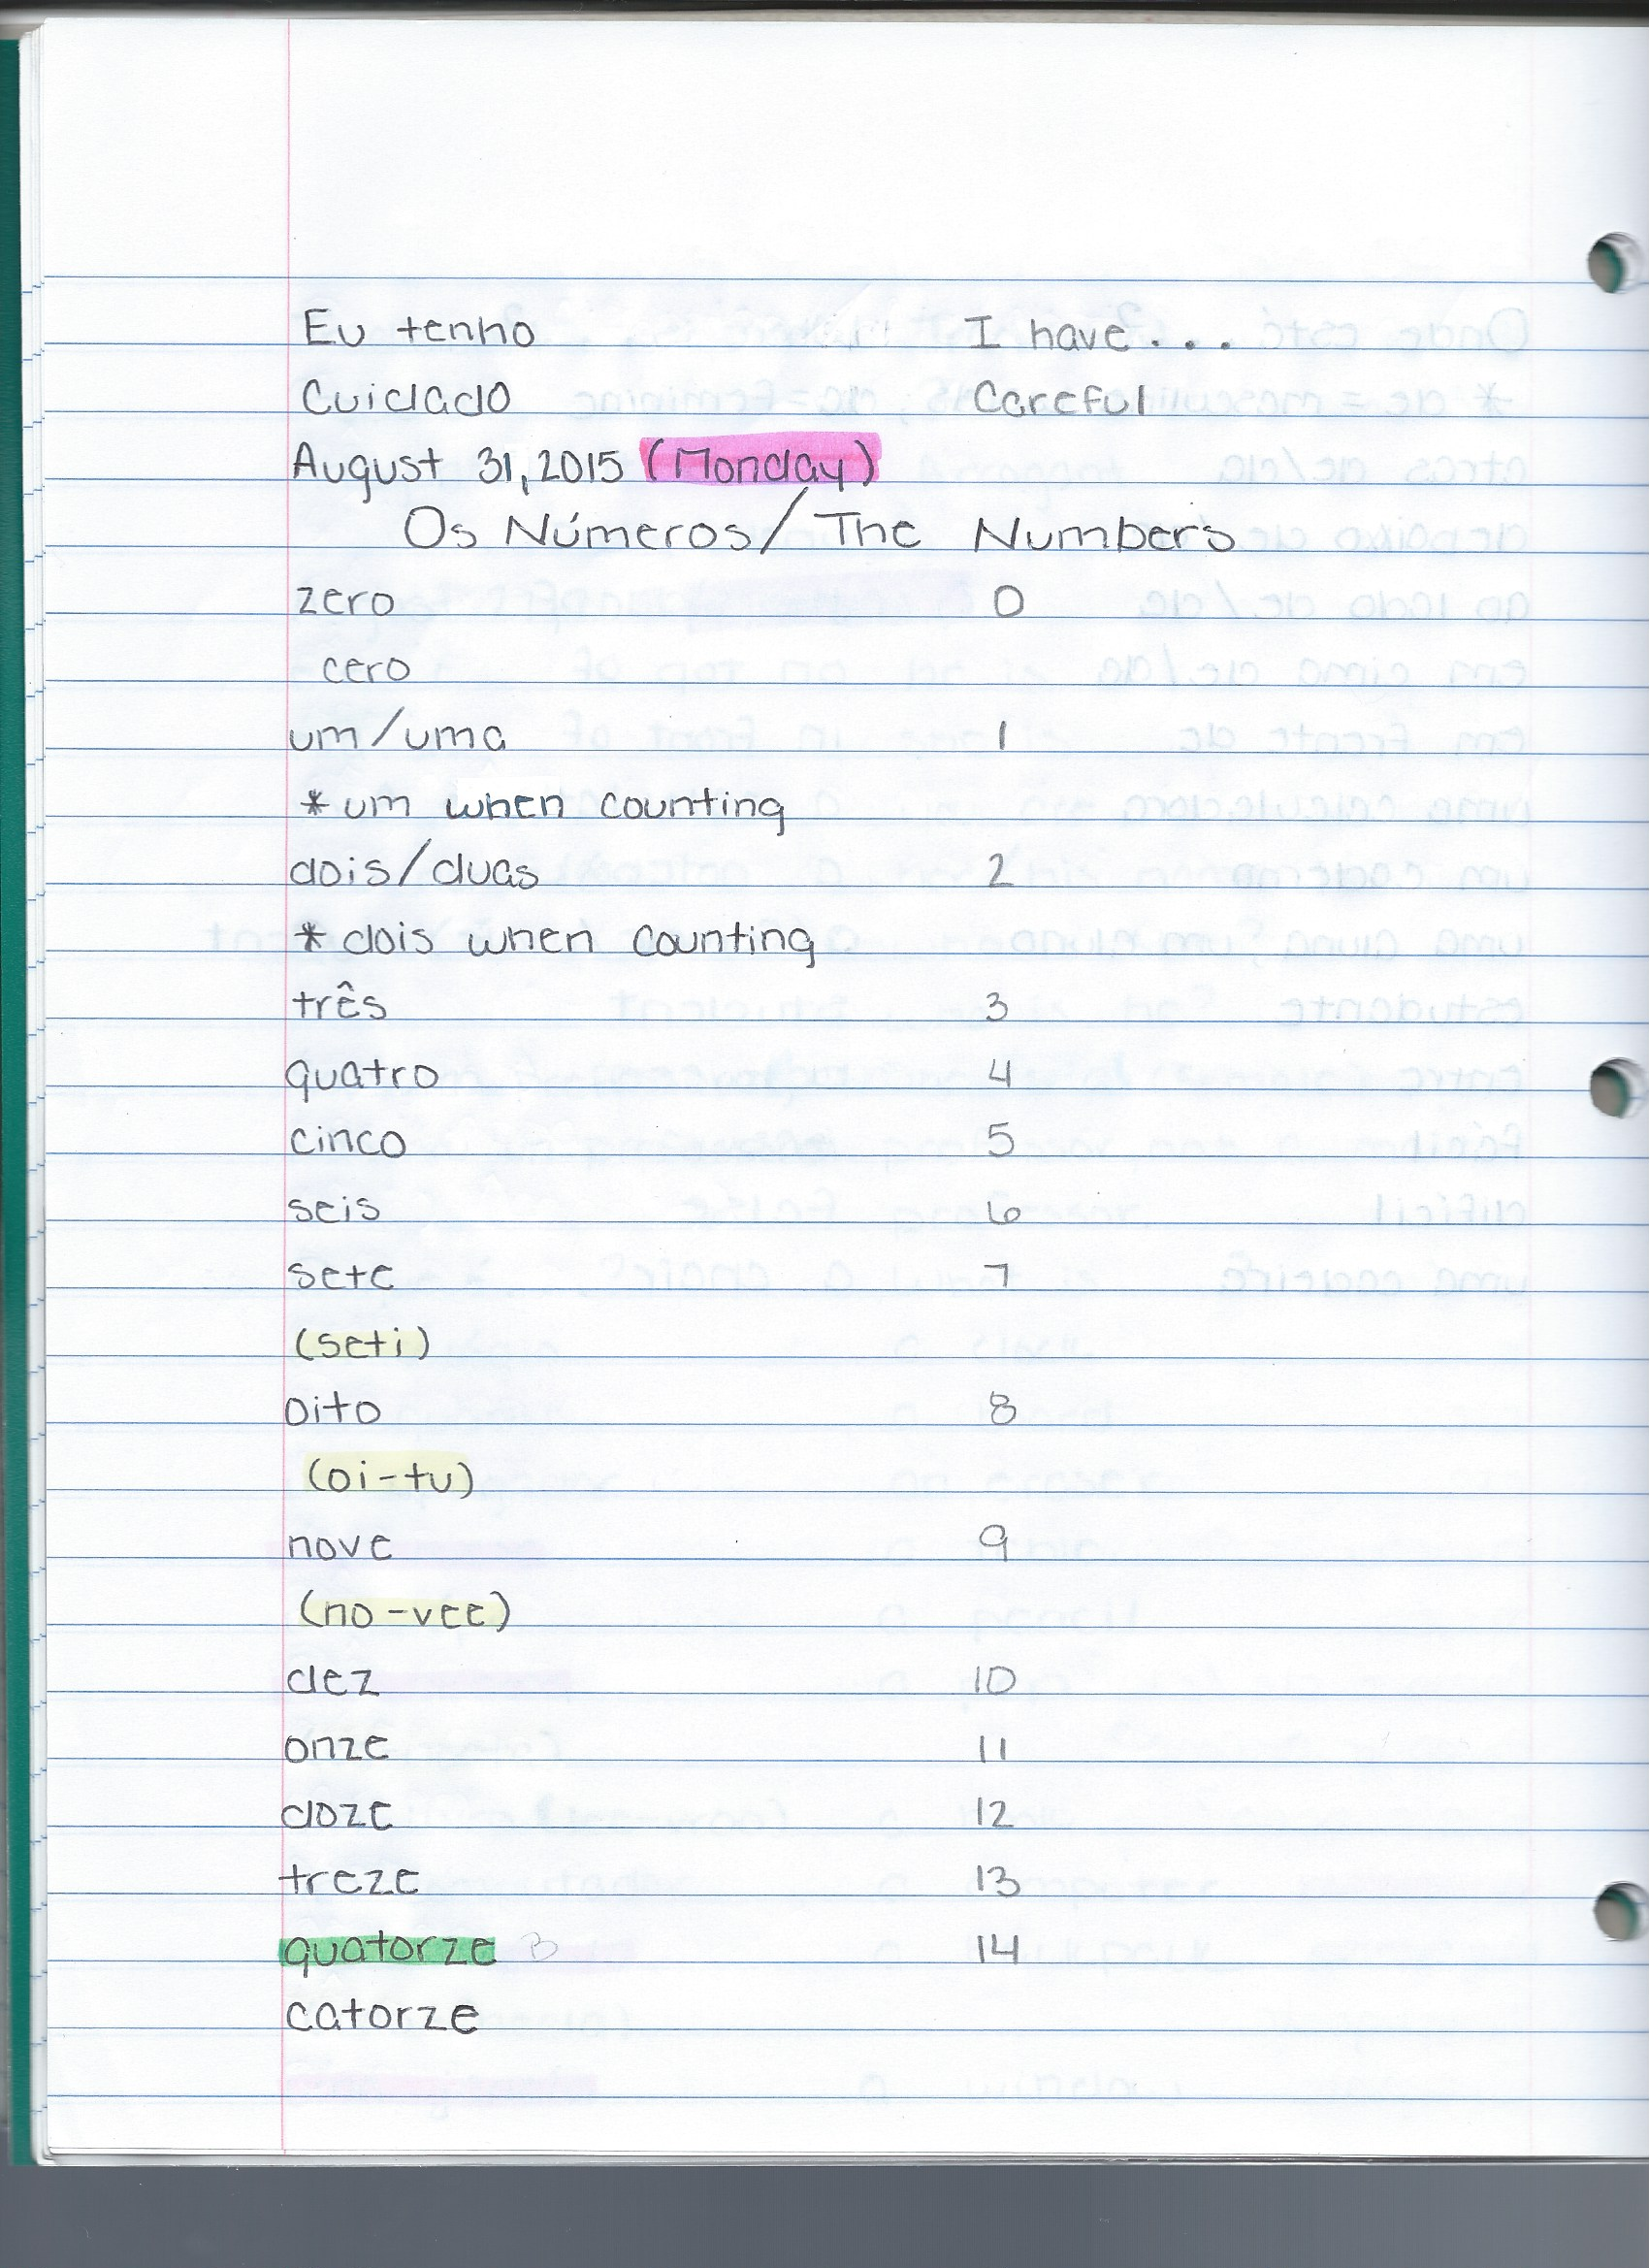 Eu tenho I have...
Cuidado Careful
August 31, 2015 (Monday)
Os Números/The Numbers
zero 0
cero
um/uma 1
*um when counting
dois/duas 2
*dois when counting
três 3
quatro 4
cinco 5
seis 6
sete 7
(seti)
oito 8
(oi-tu)
nove 9
(no-vee)
dez 10
onze 11
doze 12
treze 13
quatorze B 14
catorze